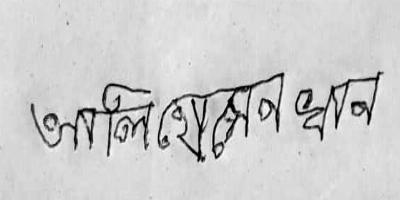 আলি হোসেন খান